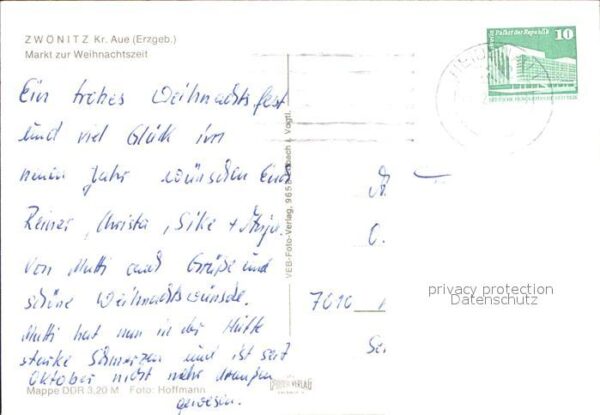 ZWÖNITZ Kr. Aue (Erzgeb.)
Markt zur Weihnachtszeit
Palast der Republik 10
Ein frohes Weihnachtsfest
und viel Glück im
neuen Jahr wünschen Euch
Reiner, Christa, Silke +
von Mutti auch Grüße und
schöne Weihnachtswünsche.
Mutti hat nun in der Hüfte
starke Schmerzen und ist seit
Oktober nicht mehr draußen
gewesen.
7010
privacy protection
Datenschutz
VEB-Foto-Verlag, 965 Vogtl.
Mappe DDR 3,20 M Foto: Hoffmann